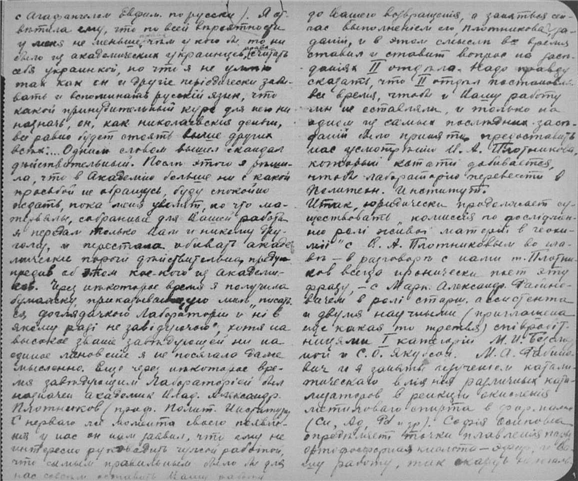 с Агафангелом Евфим. по русски). Я от-
ветила ему, что по всей вероятности
у меня не меньше, чем у кого бы то ни
было из академических украинцев, считать
себя украинкой, но что я не
так как и о другие періодически забы-
вать вспоминать русский язык, что
какой принудительный курс для него ни
назнач он, как николаевские деньги,
все равно будет стоять выше других
всех... Одним словом вышел скандал
действительный. После этого я решила,
ла, что в Академию больше ни с какой
просьбой не обращусь, буду спокойно
ждать, пока меня уволят, но что ма-
териалы, собранные для Вашей работы
я передам только Вам и никому дру-
гому, и перестала обивать акаде-
мические пороги действительно,
предав об этом кое-кого из академи-
ков. Через некоторое время я получила
бумажку, приказывающую мне
доглядачкою Лабораторії и ні в
якому разі не завідуючою", хотя на
высокое звание заведующей ни на
одно мгновение я не посягала даже
мысленно. Еще через некоторое вре-
мя заведующим Лабораторией был
назначен академик Влад. Александр.
Плотников (проф. Полит. Института)
С первого же момента своего появле-
ния у нас он нам заявил, что ему не
интересно руководить чужой работой,
что самым правильным было бы для
нас совсем оставить Вашу работу
до Вашего возвращения, а заняться сей-
час выполнением его, Плотникова, за-
даний, и в этом смысле все время
ставил и ставит вопрос на засе-
даниях II отдела. Надо правду
сказать, что II отдел постановлял
все время, чтобы и Вашу работу
мы не оставляли, и только на
одном из самых последних засе-
даний было принято предоставить
нас усмотрению В. А. Плотникова,
который кстати добивается,
чтобы лабораторию перевести в
Политехн. Институт.
Итак, юридически продолжает су-
ществовать комиссия по дослідженню
ролі живої матерії в геохи-
мії" с В. А. Плотниковым во гла-
ве - в разговоре с нами т. Плотни-
ков всегда иронически поет эту
фразу, - с Марк. Александр. Файно-
вичем в ролі старш. ассистента
и двумя научными (приглашена
еще какая то третья) співробіт-
ницями I категорії М. И. Бесс
мой и С. О. Якубсон. М. А. Файно-
вич и я заняты изучением катали-
тического влияния различных ката-
лизаторов в реакции окисления
метилового спирта
(Cu, Ag, Pt и др.). Софія Осиповна
определяет точки плавления
ортофосфорная кислота - эфир, и Ва-
шу работу, так сказать